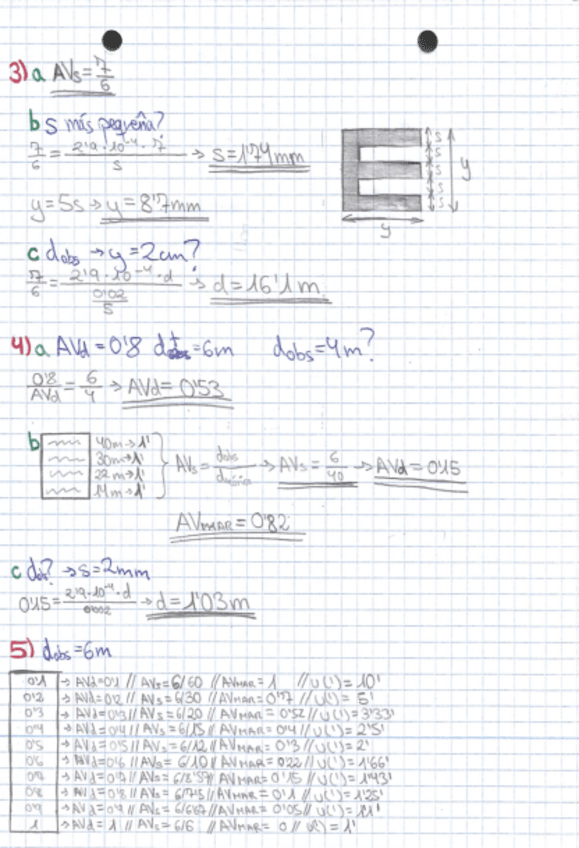 3) a AVs = 7/6
b s más pequeña?
7/6 = 2'9·10⁻⁴·7 / s → s = 1'74mm
y = 5s → y = 8'7mm
s
s
s
s
s
y
y
c dobs → y = 2cm?
7/6 = 2'9·10⁻⁴·d / (0'02/5) → d = 16'1 m
4) a AVd = 0'8 dobs = 6m dobs = 4m?
0'8/AVd = 6/4 → AVd = 0'53
b 40m → 1'
30m → 1'
22m → 1'
14m → 1'
AVs = dobs / → AVs = 6/40 → AVd = 0'15
AVMAR = 0'82
c dobs? → s = 2mm
0'15 = 2'9·10⁻⁴·d / 0'002 → d = 1'03m
5) dobs = 6m
0'1 → AVd = 0'1 // AVs = 6/60 // AVMAR = 1 // U(') = 10'
0'2 → AVd = 0'2 // AVs = 6/30 // AVMAR = 0'7 // U(') = 5'
0'3 → AVd = 0'3 // AVs = 6/20 // AVMAR = 0'52 // U(') = 3'33'
0'4 → AVd = 0'4 // AVs = 6/15 // AVMAR = 0'4 // U(') = 2'5'
0'5 → AVd = 0'5 // AVs = 6/12 // AVMAR = 0'3 // U(') = 2'
0'6 → AVd = 0'6 // AVs = 6/10 // AVMAR = 0'22 // U(') = 1'66'
0'7 → AVd = 0'7 // AVs = 6/8'57 // AVMAR = 0'15 // U(') = 1'43'
0'8 → AVd = 0'8 // AVs = 6/7'5 // AVMAR = 0'1 // U(') = 1'25'
0'9 → AVd = 0'9 // AVs = 6/6'67 // AVMAR = 0'05 // U(') = 1'1'
1 → AVd = 1 // AVs = 6/6 // AVMAR = 0 // U(') = 1'